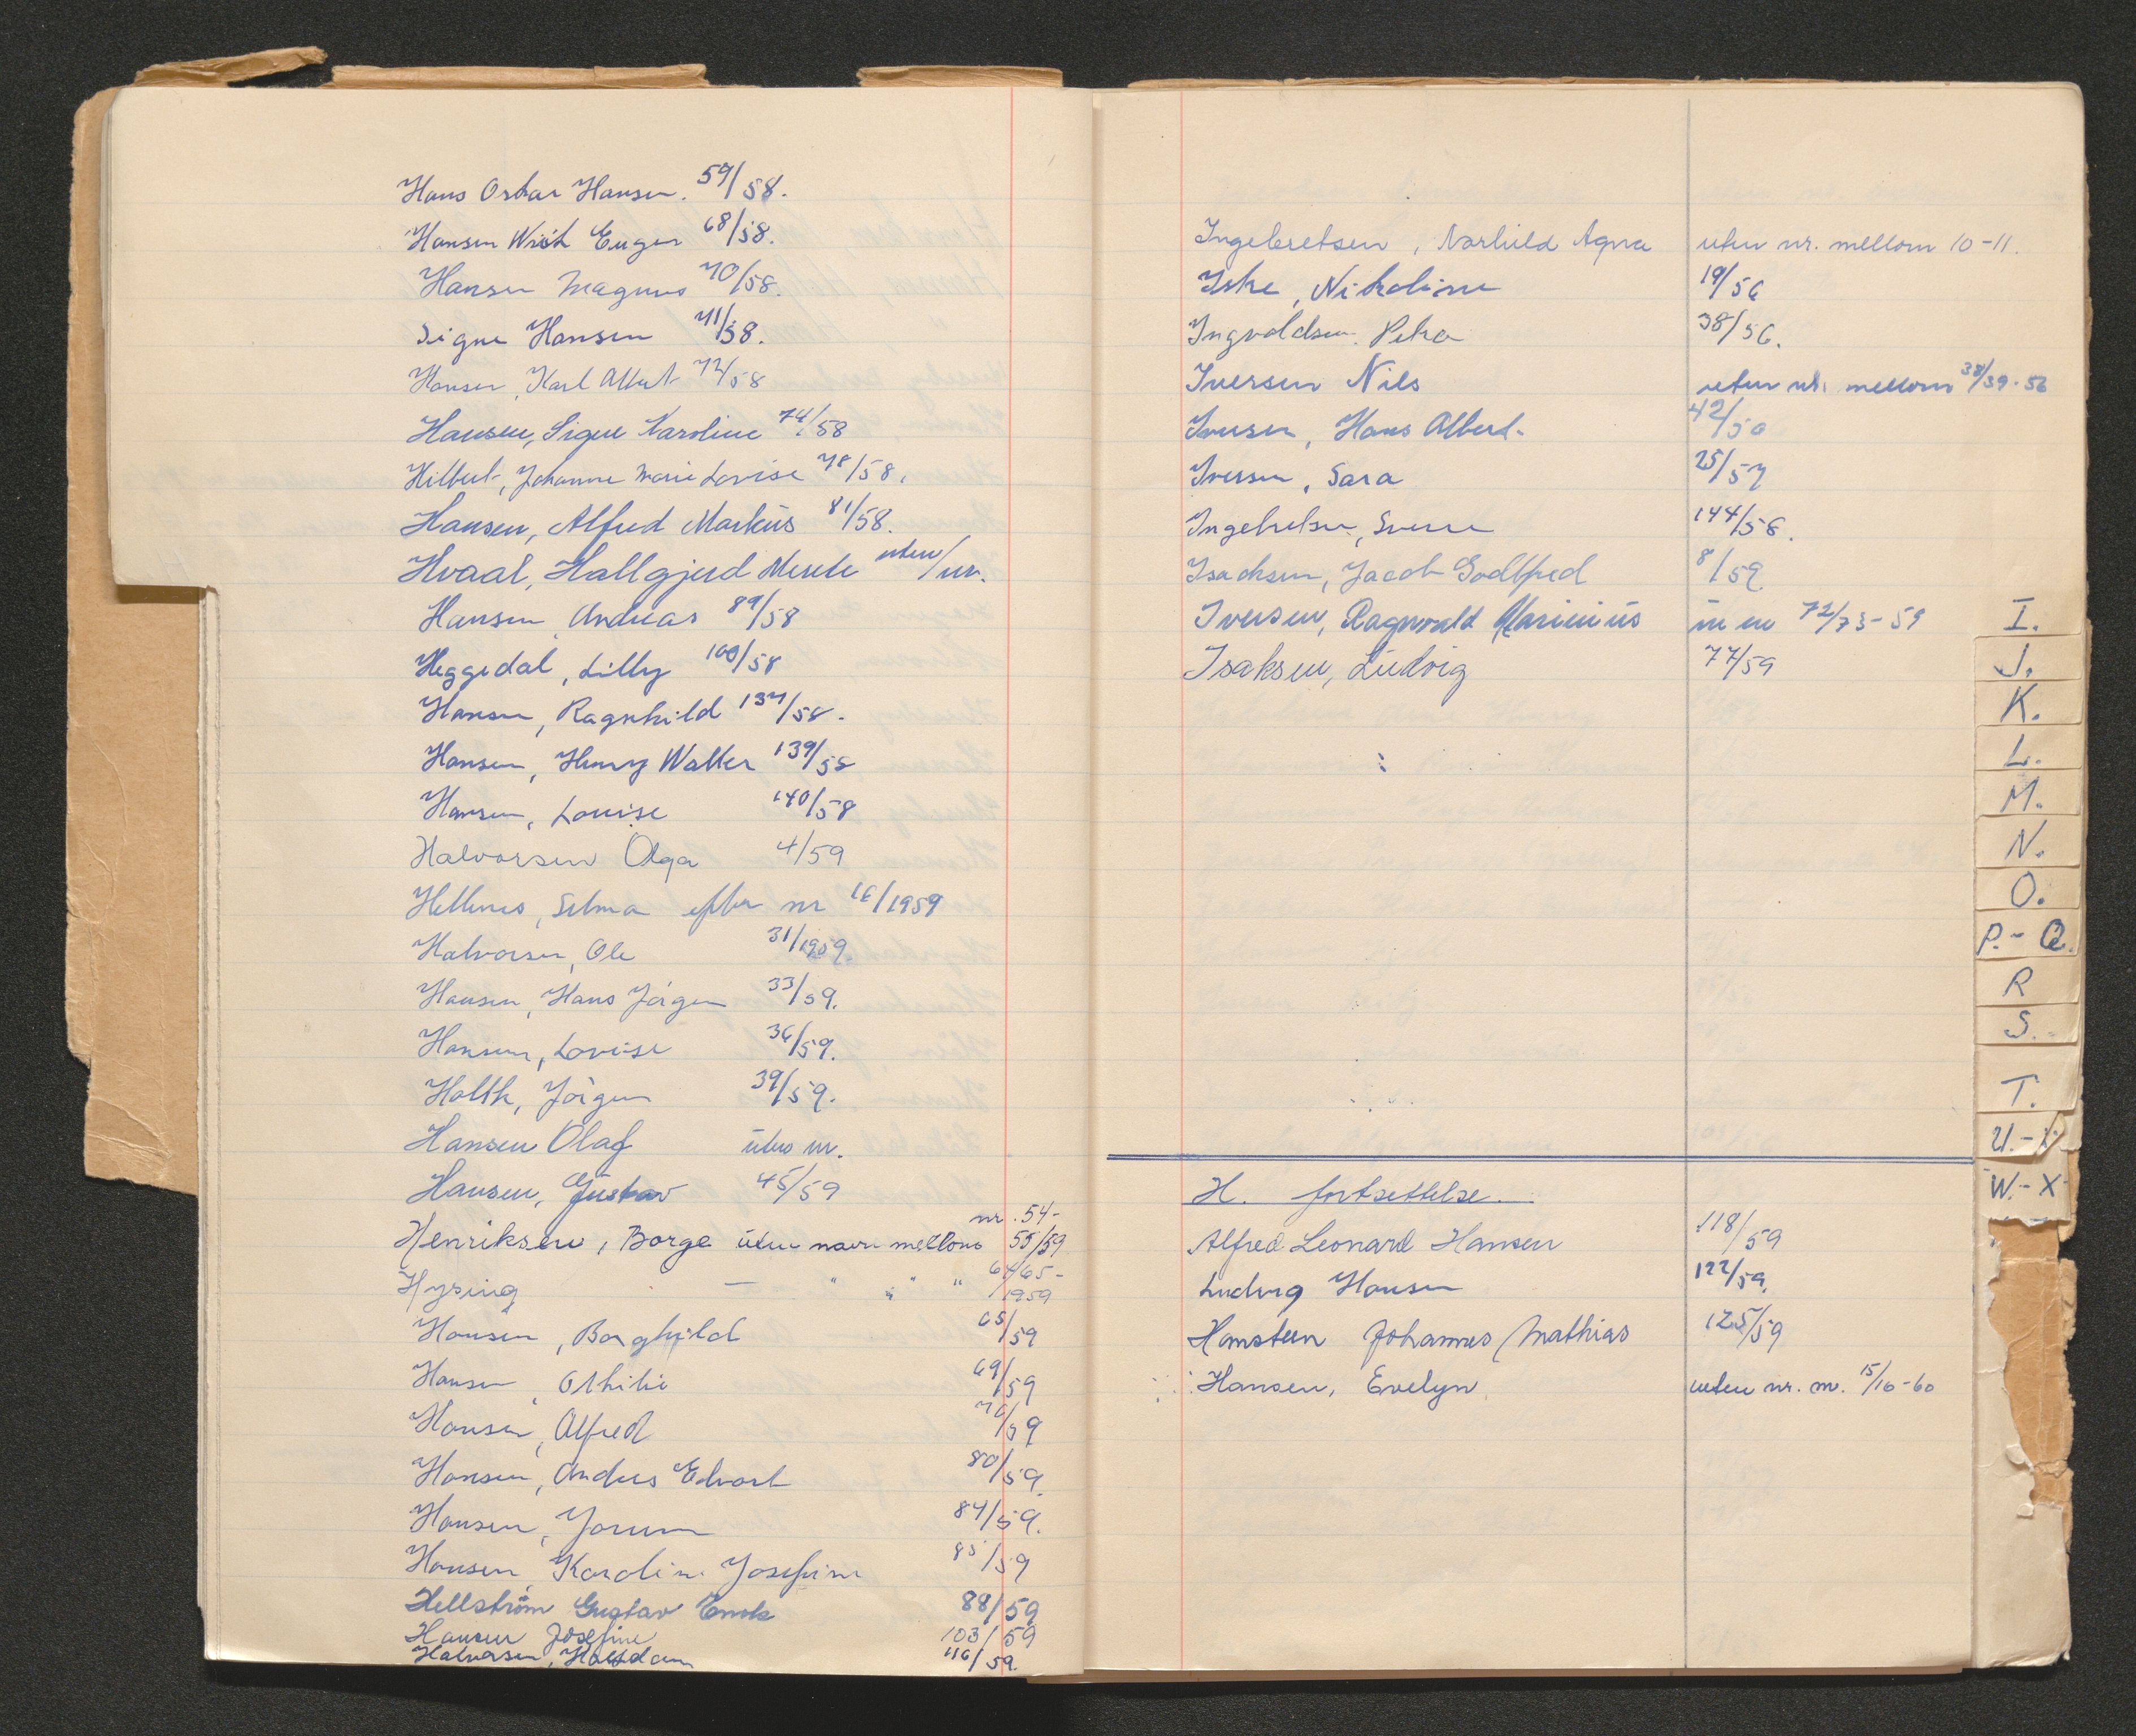 Hans Oskar Hansen. 57/58.
Hansen Wiik Eugen 68/58.
Hansen Magnus 70/58.
Signe Hansen 71/58.
Hansen, Karl Albert 72/58
Hansen, Signe Karoline 74/58
Hilbert, Johanne Marie Lovise 78/58.
Hansen, Alfred Markus 81/58.
Hvaal, Hallgjerd Merete uten/nr.
Hansen, Andreas 89/58
Heggedal, Lilly 100/58
Hansen, Ragnhild 137/58.
Hansen, Henry Walter 139/58
Hansen, Louise 140/58
Halvorsen Olga 4/59
Hellenes, Selma efter nr 16/1959
Halvorsen, Ole 31/1959.
Hansen, Hans Jörgen 33/59.
Hansen, Lovise 36/59.
Holth, Jörgen 39/59.
Hansen Olaf uten nr.
Hansen, Gustav 45/59
Henriksen, Borge uten navn mellom nr. 54-55/59
Hysing — " " " 64/65-1959
Hansen, Borghild 65/59
Hansen, Othilie 69/59
Hansen, Alfred 76/59
Hansen, Anders Edvart 80/59.
Hansen, Jorunn 84/59.
Hansen, Karoline Josefine 85/59
Hellström Gustav 88/59
Hansen Josefine 103/59
Halvorsen, Halfdan 116/59.
Ingebretsen, Norhild Agna uten nr. mellom 10-11.
Iske, Nikoline 19/56
Ingvoldsen. Petra 38/56.
Iversen Nils uten nr. mellom 38/39-56
Iversen, Hans Albert. 42/56
Iversen, Sara 25/57
Ingebretsen, Sverre 144/58.
Isachsen, Jacob Godtfred 8/59
Iversen, Ragnvald Marinius 72/73-59
Isaksen, Ludvig 77/59
H. fortsettelse.
Alfred Leonard Hansen 118/59
Ludvig Hansen 122/59.
Hamsteen Johannes Mathias 125/59
Hansen, Evelyn uten nr. m. 15/16-60
I.
J.
K.
L.
M.
N.
O.
P.-Q.
R
S.
T.
U.-V
W.-X